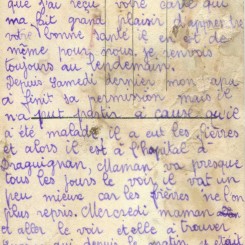 que j'ai reçu votre carte qui
m'a fait grand plaisir d'apprendre
votre bonne santé il en est de
même pour nous. je renvois
toujours au lendemain.
Depuis Samedi dernier mon papa
a fenit sa permission mais il
n'a put partir à cause qu'il
a été malade il a eut les fièvres
et alors il est à l'hopital d
raguignan, Maman va presque
tous les jours le voir il vat un
peu mieux car les fièvres ne l'on
plus repris. Mercredi maman
et aller le voir et elle à trouver
qui depuis le matin il était